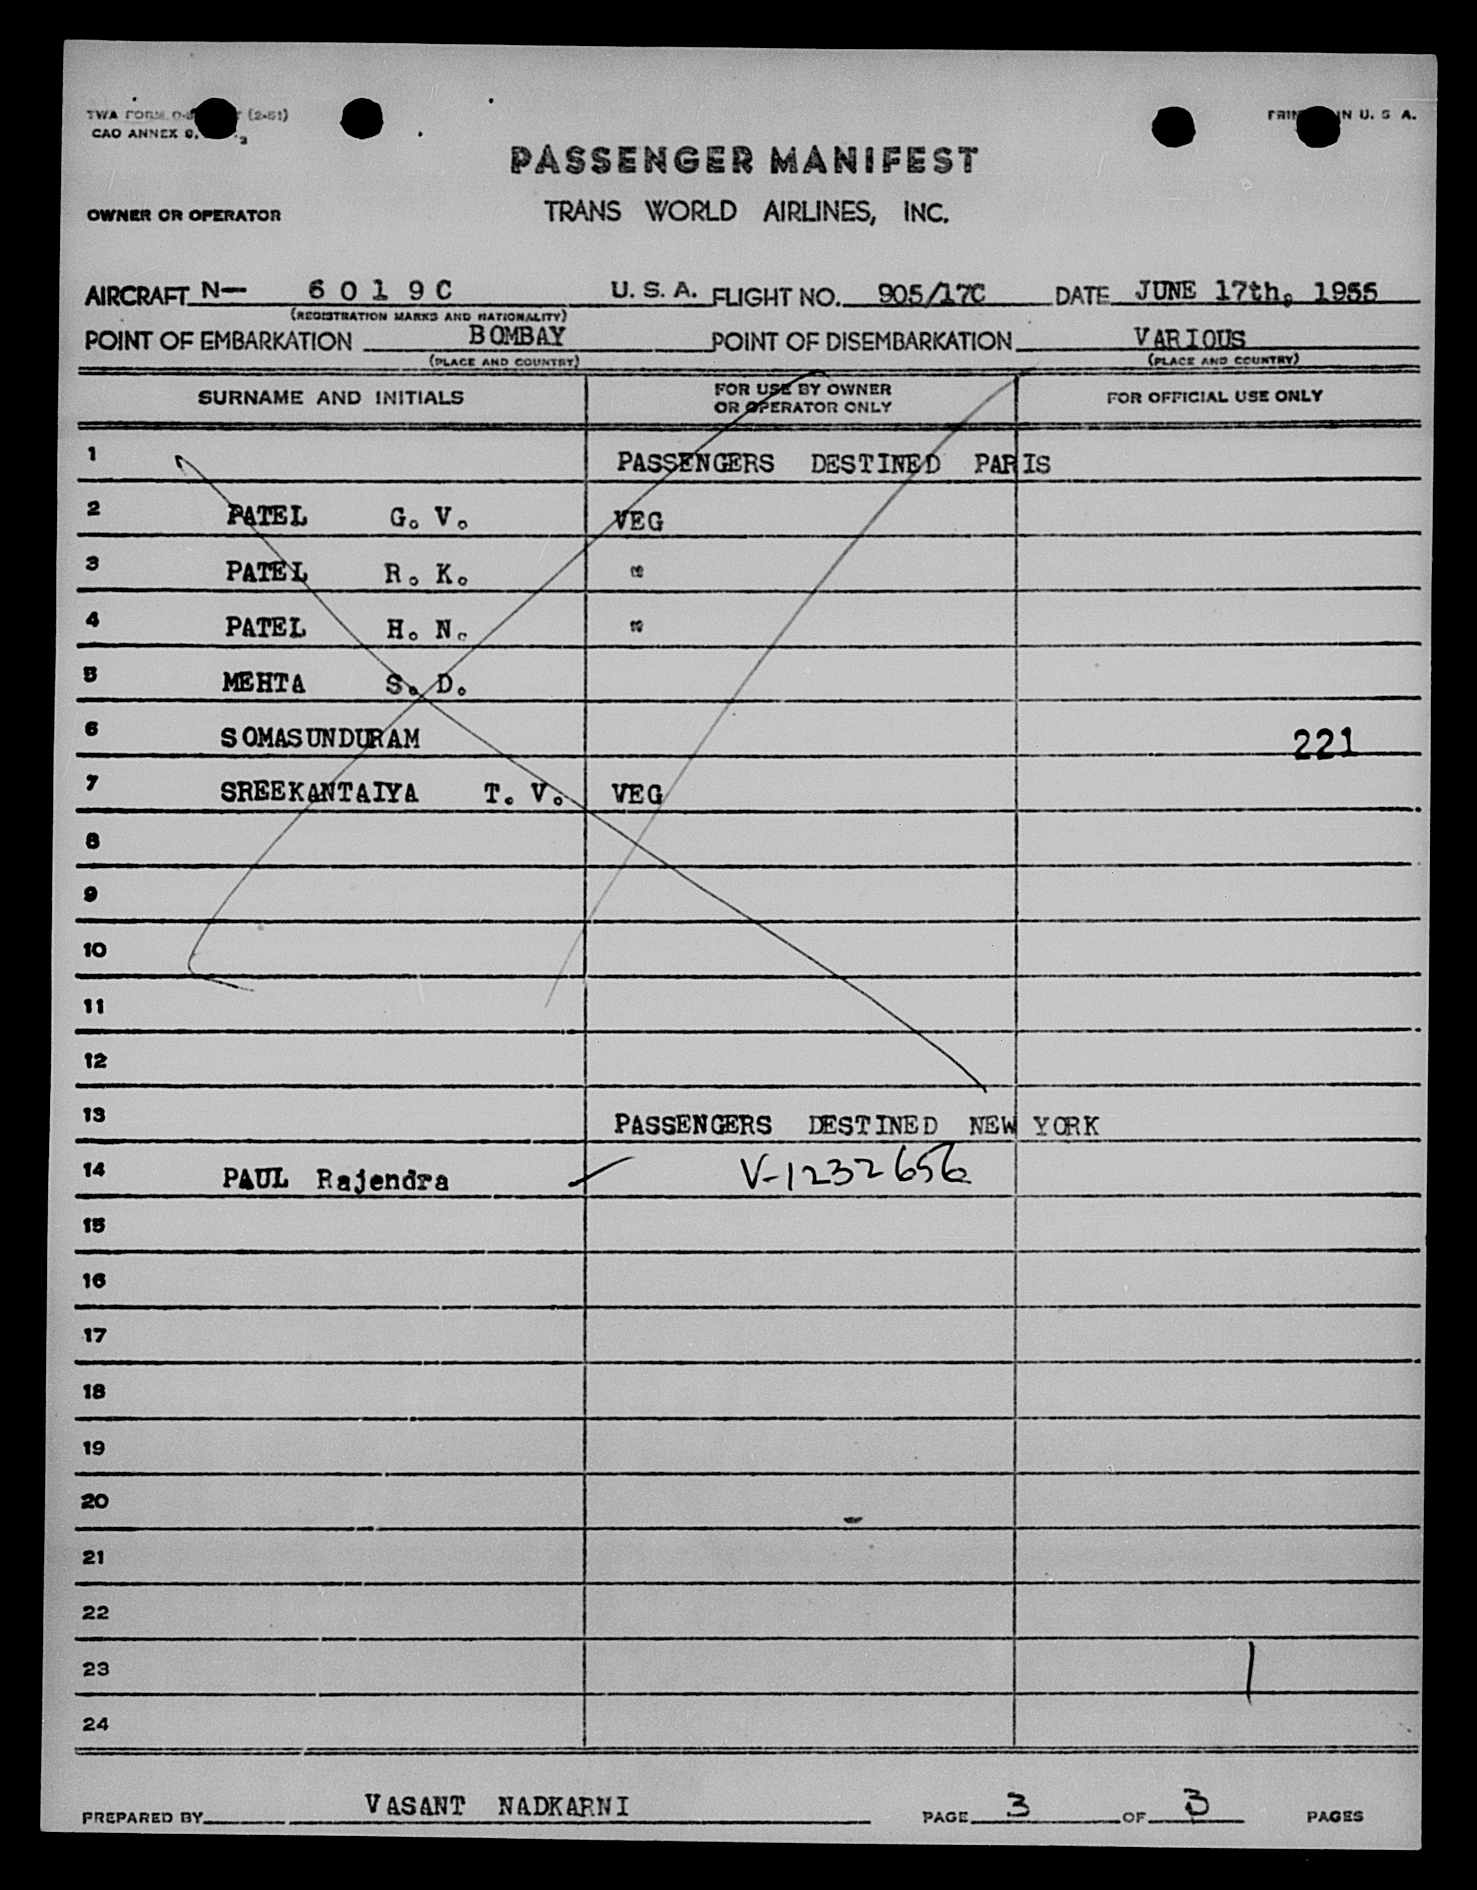 TWA FORM (2-51)
PRINTED IN U. S. A.
CAO ANNEX 9,
PASSENGER MANIFEST
OWNER OR OPERATOR TRANS WORLD AIRLINES, INC.
AIRCRAFT N— 6 0 1 9 C U. S. A. FLIGHT NO. 905/17C DATE JUNE 17th, 1955
(REGISTRATION MARKS AND NATIONALITY)
POINT OF EMBARKATION BOMBAY POINT OF DISEMBARKATION VARIOUS
(PLACE AND COUNTRY) (PLACE AND COUNTRY)
SURNAME AND INITIALS FOR USE BY OWNER OR OPERATOR ONLY FOR OFFICIAL USE ONLY
1 PASSENGERS DESTINED PARIS
2 PATEL G. V. VEG
3 PATEL R. K. "
4 PATEL H. N. "
5 MEHTA S. D.
6 SOMASUNDURAM 221
7 SREEKANTAIYA T. V. VEG
8
9
10
11
12
13 PASSENGERS DESTINED NEW YORK
14 PAUL Rajendra V-1232656
15
16
17
18
19
20
21
22
23
24
PREPARED BY VASANT NADKARNI PAGE 3 OF 3 PAGES